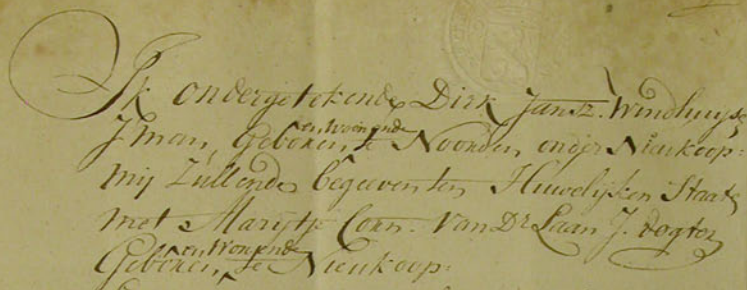 Ik ondergetekende Dirk Jansz. Windhuijse
J:man, Geboren en Woonende te Noorden, onder Nieukoop:
mij Zullende begeeven ten Huwelijken Staat
met Marijtje Corn: Van Dr Laan J. dogter
Geboren, en Wonende te Nieukoop: